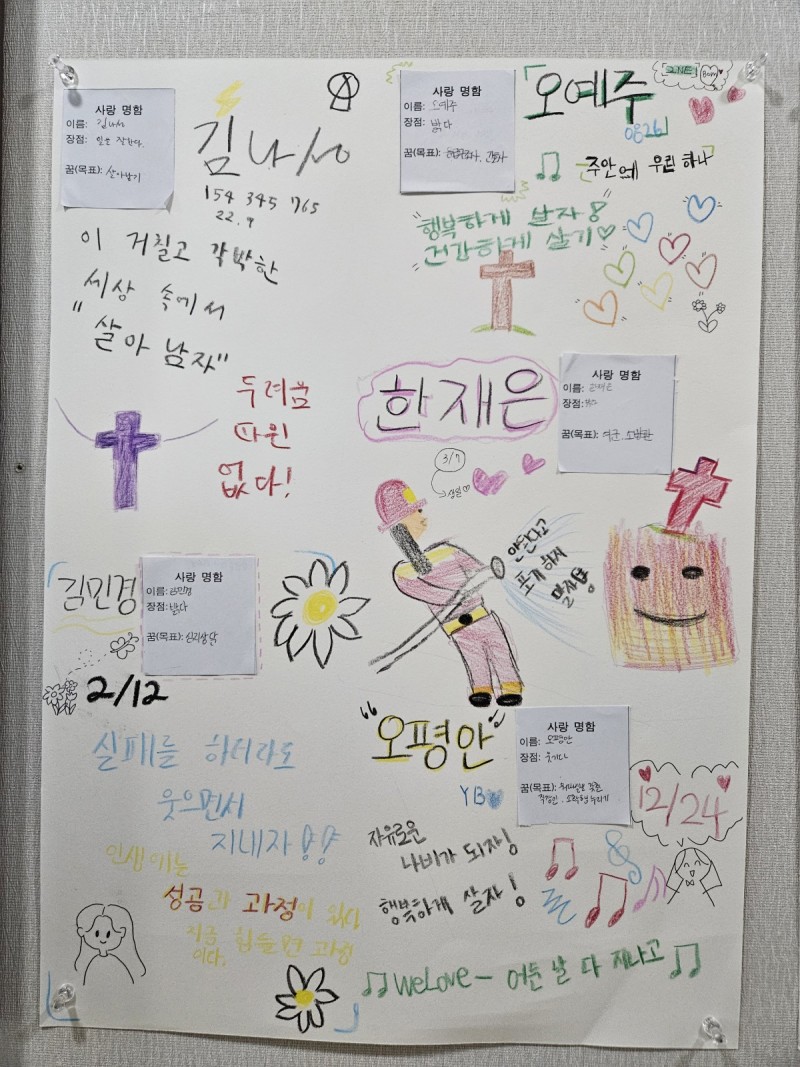 사랑 명함
이름: 김나서
장점: 잘한다.
꿈(목표): 살아남기
김나서
154 345 765
22. 9
이 거칠고 각박한
세상 속에서
"살아 남자"
두려움
따윈
없다!
사랑 명함
이름: 오예주
장점: 밝다
꿈(목표): 간호사
오예주
0826
2NE1
주안에 우린 하나
"행복하게 살자!
건강하게 살기♡"
한재은
사랑 명함
이름: 한재은
장점:
꿈(목표): 여군, 소방관
3/7
생일♡
안된다고
포기하지
말자!
김민경
사랑 명함
이름: 김민경
장점: 밝다
꿈(목표): 심리상담
2/12
실패를 하더라도
웃으면서
지내자
인생에는
성공과 과정이 있다
지금 힘들면 과정
이다.
"오평안"
YB
사랑 명함
이름: 오평안
장점: 웃기다
꿈(목표):
직장인, 소확행 누리기
12/24
자유로운
나비가 되자!
행복하게 살자!
WeLove- 어둔 날 다 지나고